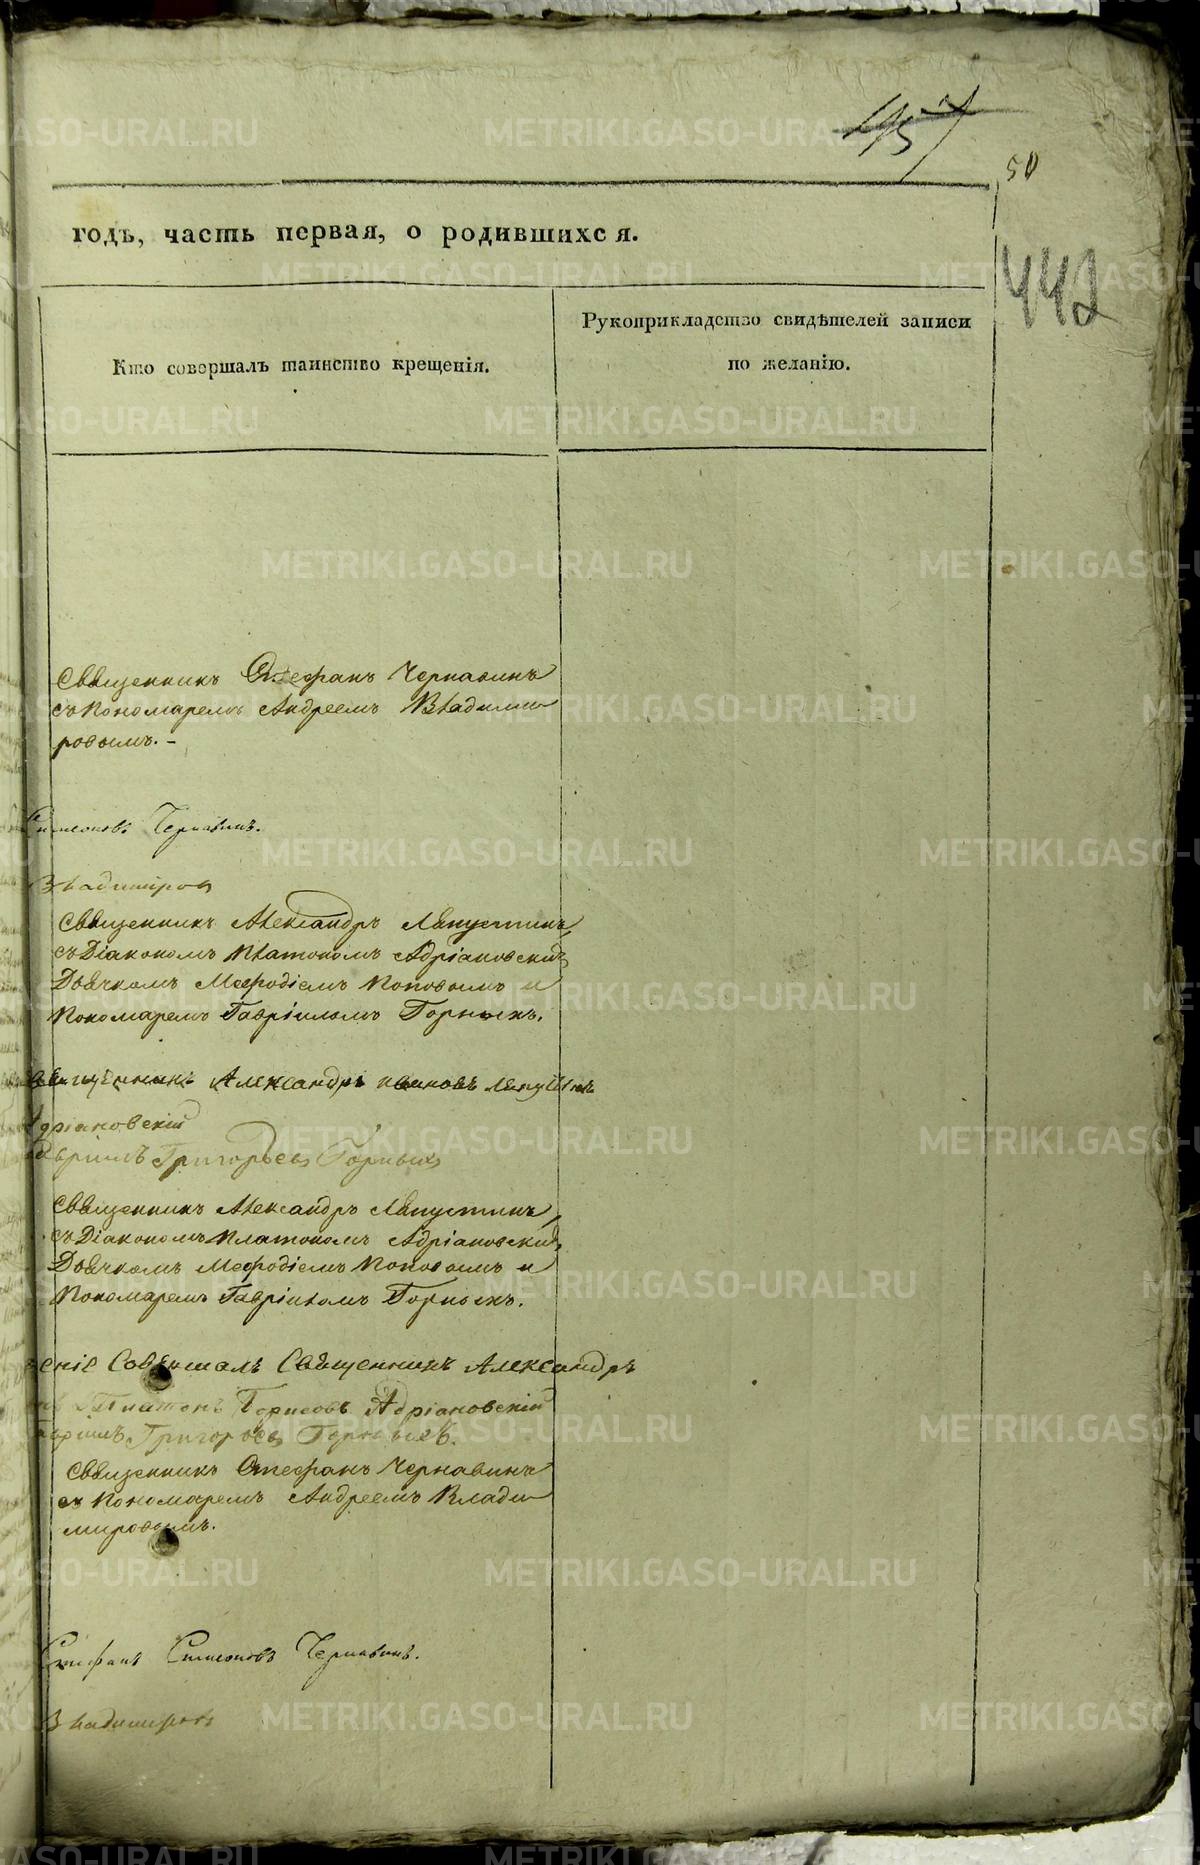 457
50
годъ, часть первая, о родившихся.
442
Кто совершалъ таинство крещенія.
Рукоприкладство свидѣтелей записи
по желанію.
Священникъ Стефанъ Чернавинъ
съ Пономаремъ Андреемъ Влади
ровымъ.-
Симеоновъ Чернавинъ.
Владиміров
Священникъ Александръ Ляпустинъ,
съ Діакономъ Платономъ Адріановскимъ
Дьячкомъ Мефодіемъ Поповымъ и
Пономаремъ Гавріиломъ Горныхъ.
Александръ Ивановъ Ляпустинъ
Адріановскій
Григорьевъ Горныхъ
Священникъ Александръ Ляпустинъ,
съ Діакономъ Платономъ Адріановскимъ,
Дьячкомъ Мефодіемъ Поповымъ и
Пономаремъ Гавріиломъ Горныхъ.
Совершалъ Священникъ Александръ
Платонъ Борисовъ Адріановскій
Григорьевъ Горныхъ.
Священникъ Стефанъ Чернавинъ
съ Пономаремъ Андреемъ Влади
мировымъ.
Стефанъ Симеоновъ Чернавинъ.
Владимировъ
METRIKI.GASO-URAL.RU